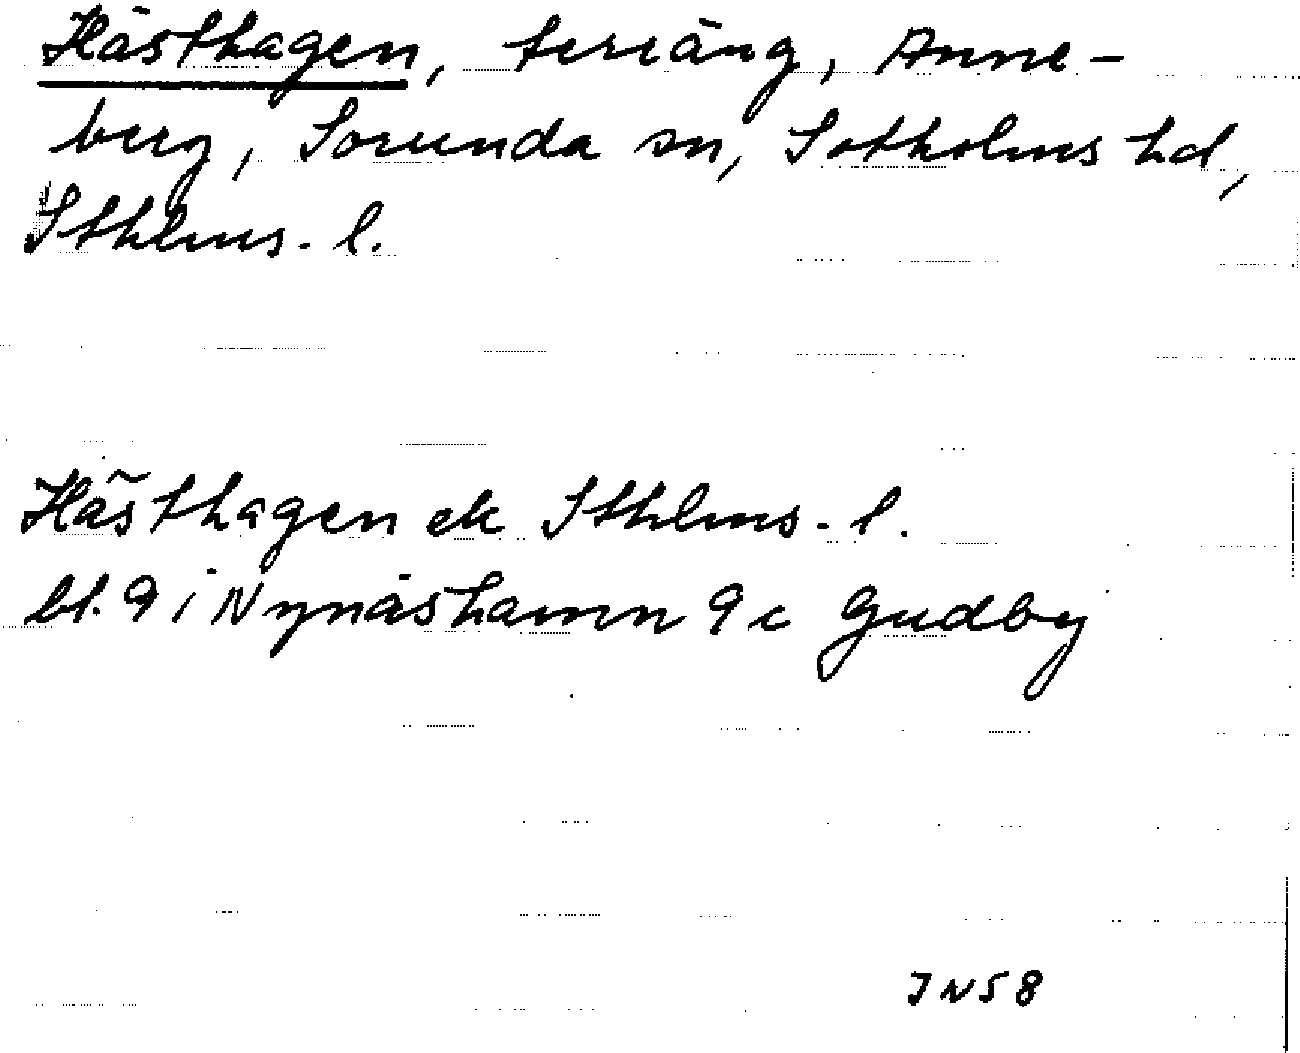 Hästhagen, teräng, Anne-
berg, Sorunda sn, Sotholms hd,
Sthlms. l.
Hästhagen ek Sthlms-l.
bl. 9 i Nynäshamn 9 c Gudby
JN58